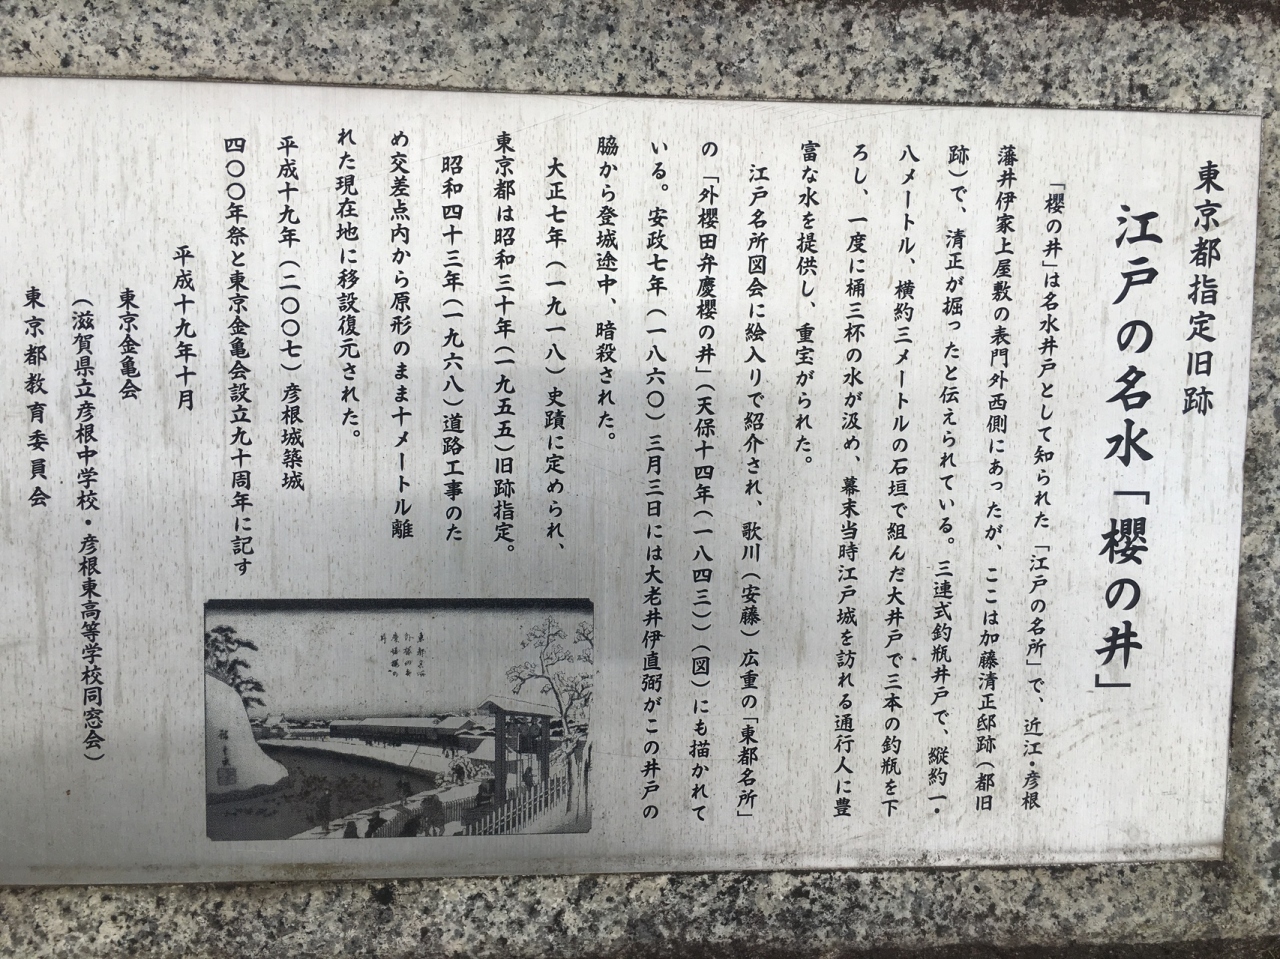 東京都指定旧跡
江戸の名水「櫻の井」
「櫻の井」は名水井戸として知られた「江戸の名所」で、近江・彦根
藩井伊家上屋敷の表門外西側にあったが、ここは加藤清正邸跡（都旧
跡）で、清正が掘ったと伝えられている。三連式釣瓶井戸で、縦約一・
八メートル、横約三メートルの石垣で組んだ大井戸で三本の釣瓶を下
ろし、一度に桶三杯の水が汲め、幕末当時江戸城を訪れる通行人に豊
富な水を提供し、重宝がられた。
江戸名所図会に絵入りで紹介され、歌川（安藤）広重の「東都名所」
の「外櫻田弁慶櫻の井」（天保十四年（一八四三））（図）にも描かれて
いる。安政七年（一八六〇）三月三日には大老井伊直弼がこの井戸の
脇から登城途中、暗殺された。
大正七年（一九一八）史蹟に定められ、
東京都は昭和三十年（一九五五）旧跡指定。
昭和四十三年（一九六八）道路工事のた
め交差点内から原形のまま十メートル離
れた現在地に移設復元された。
平成十九年（二〇〇七）彦根城築城
四〇〇年祭と東京金亀会設立九十周年に記す
平成十九年十月
東京金亀会
（滋賀県立彦根中学校・彦根東高等学校同窓会）
東京都教育委員会